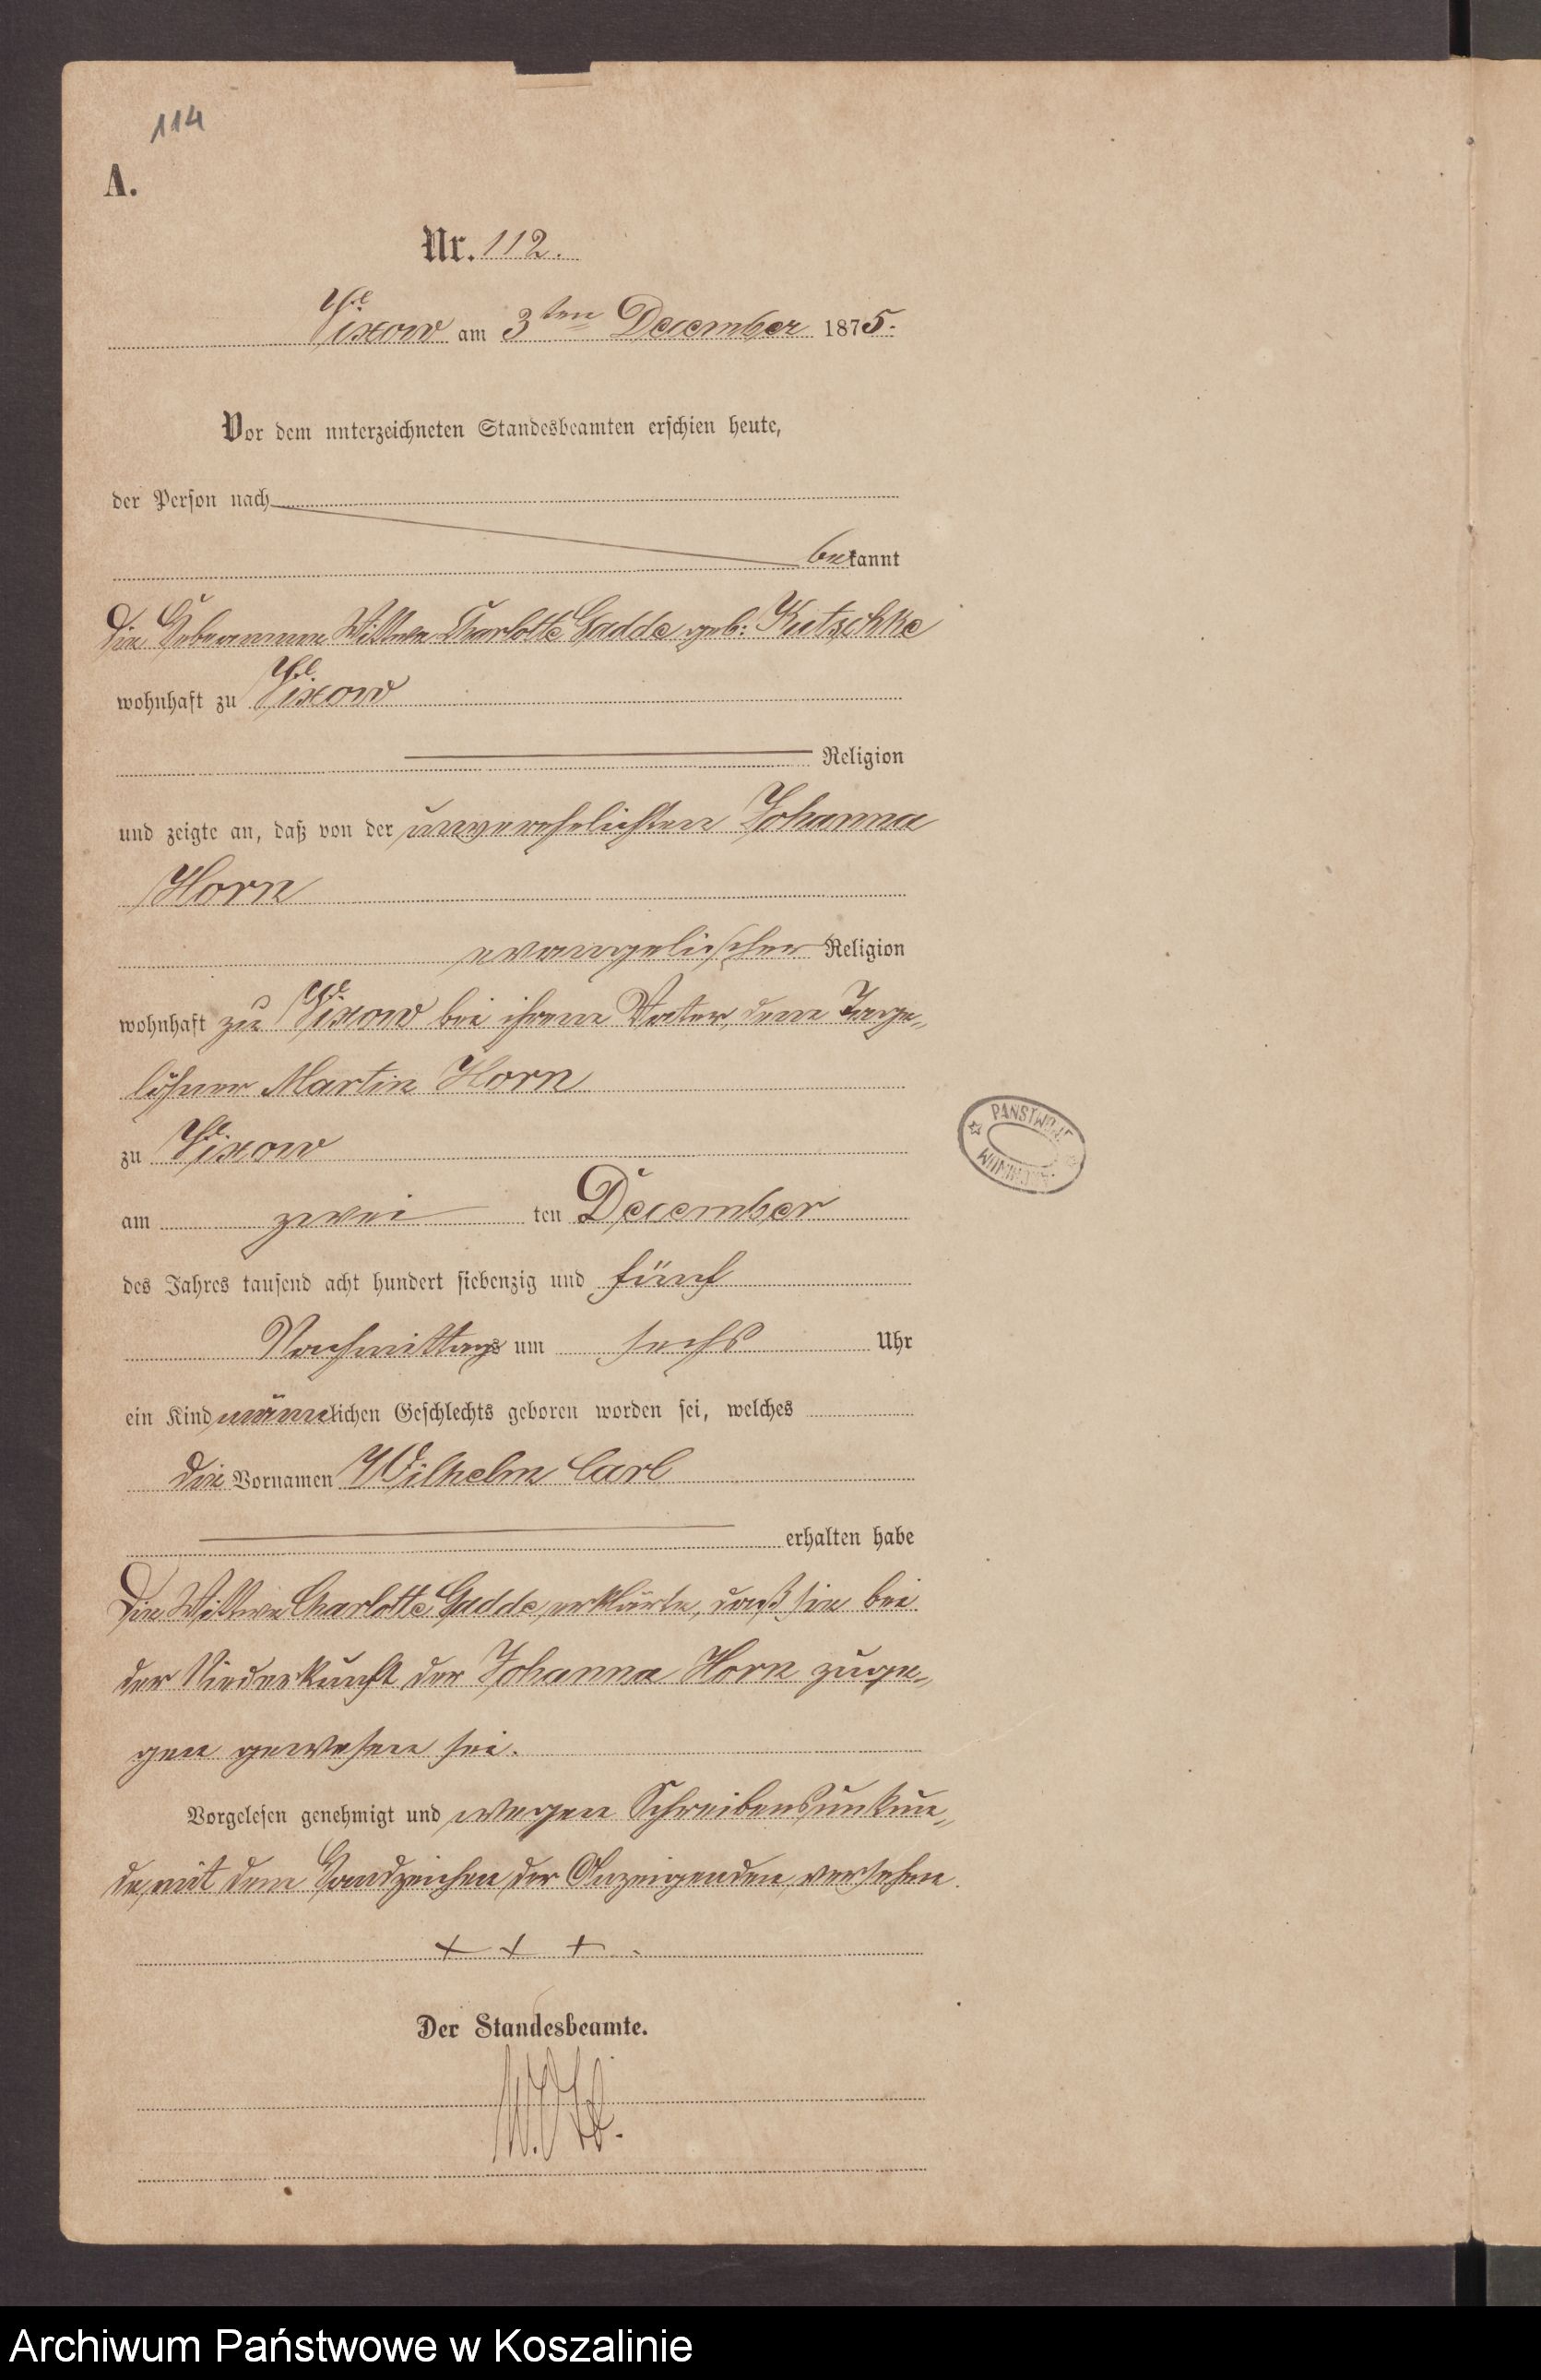 114
A.
Nr. 112.
Vixow am 3ten December 1875.
Vor dem unterzeichneten Standesbeamten erschien heute,
der Person nach
bekannt
Die Hebeamme Wittwe Charlotte Gadde geb: Kutschke
wohnhaft zu Vixow
Religion
und zeigte an, daß von der unverehelichten Johanna
Horn
evangelischer Religion
wohnhaft zu Vixow bei ihrem Vater, dem Tage„
löhner Martin Horn
zu Vixow
am zwei ten December
des Jahres tausend acht hundert siebenzig und fünf
Nachmittags um sechs Uhr
ein Kind männlichen Geschlechts geboren worden sei, welches
die Vornamen Wilhelm Carl
erhalten habe
Die Wittwe Charlotte Gadde, erklärte, daß sie bei
der Niederkunft der Johanna Horn zuge„
gen gewesen sei.
Vorgelesen genehmigt und wegen Schreibensunkun„
de, mit dem Handzeichen der Anzeigenden, versehen.
+ + +
Der Standesbeamte.
PAŃSTWOWE
ARCHIWUM
Archiwum Państwowe w Koszalinie